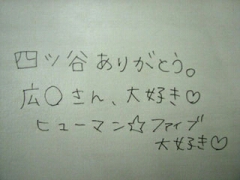 四ツ谷ありがとう。
広○さん、大好き♡
ヒューマン☆ファイブ
大好き♡